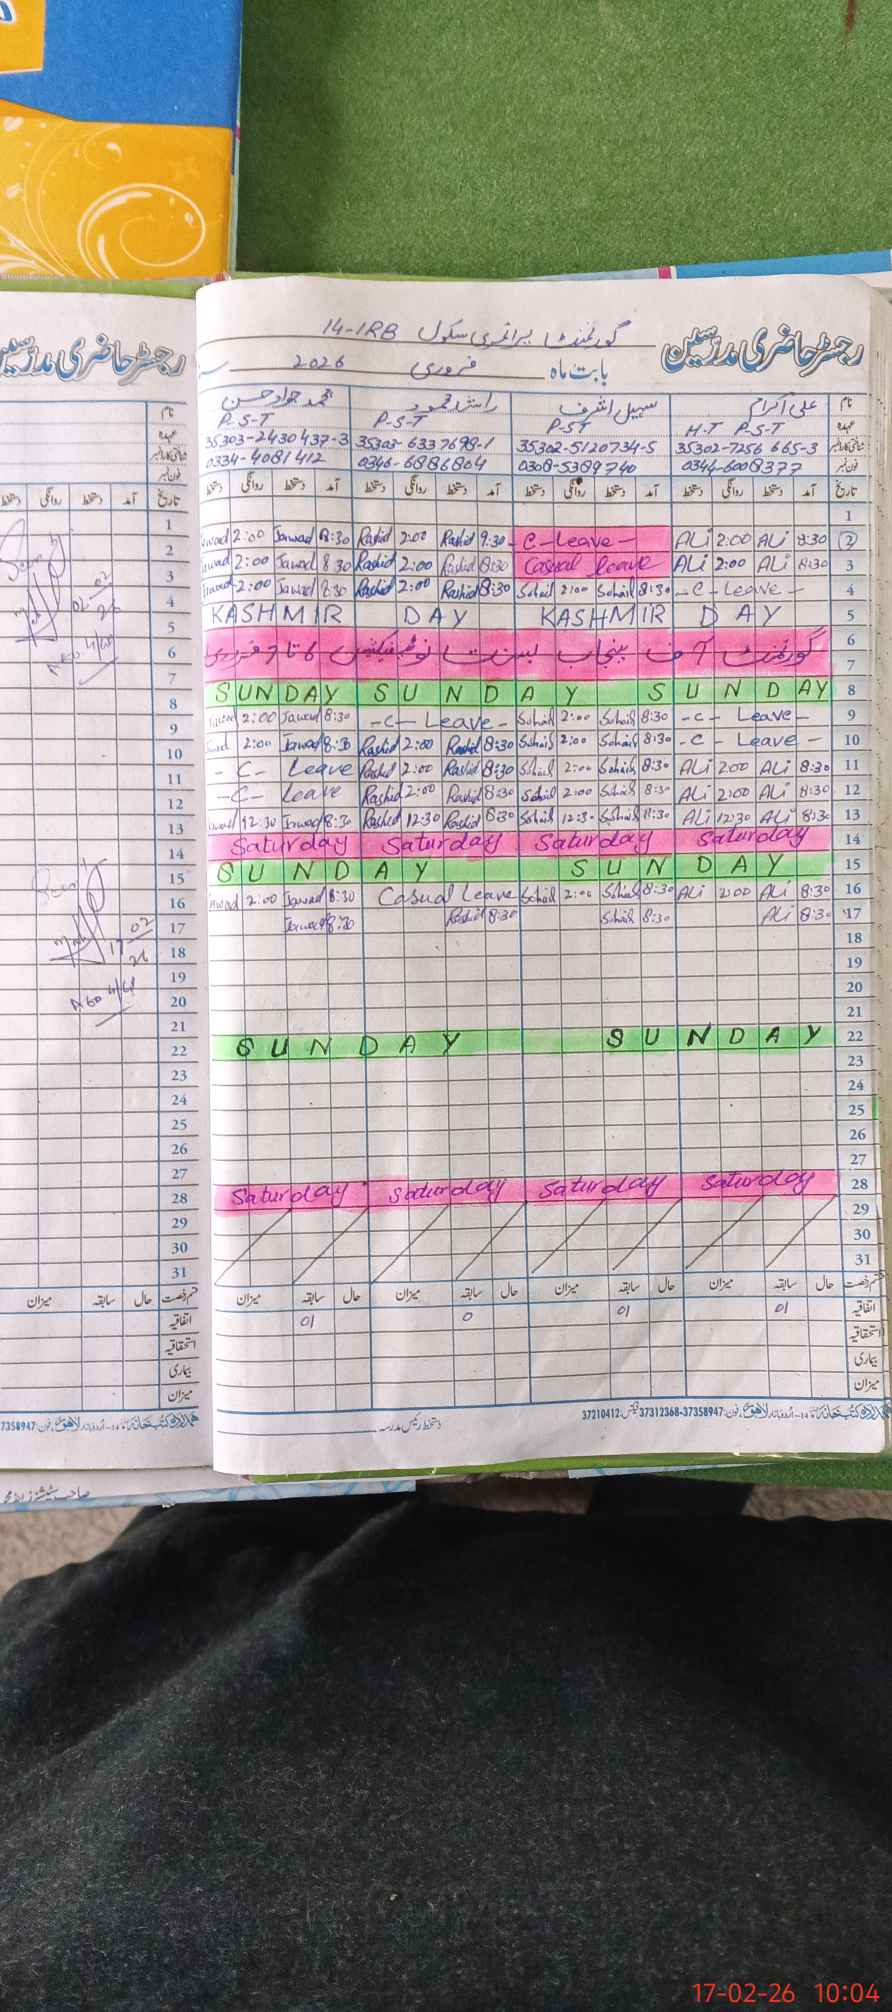 رجسٹر حاضری مدرسین
گورنمنٹ پرائمری سکول 14-1RB
بابت ماہ فروری 2026
نام علی اکرام سہیل اشرف راشد محمود محمد جواد حسن
عہدہ H.T P.S.T P.S.T P-S-T P-S-T
35302-7256665-3 35302-5120734-5 35302-6337698-1 35303-2430437-3
فون نمبر 0344-6008377 0308-5389740 0346-6886804 0334-4081412
تاریخ آمد دستخط روانگی دستخط آمد دستخط روانگی دستخط آمد دستخط روانگی دستخط آمد دستخط روانگی دستخط
1
2:00 Jawad 8:30 Rashid 2:00 Rashid 9:30 -C-Leave- ALi 2:00 ALi 8:30 2
2:00 Jawad 8:30 Rashid 2:00 Rashid 8:30 Casual leave ALi 2:00 ALi 8:30 3
2:00 Jawad 8:30 Rashid 2:00 Rashid 8:30 Sohail 2:00 Sohail 8:30 -C-Leave- 4
KASHMIR DAY KASHMIR DAY 5
گورنمنٹ آف پنجاب بسنت نوٹیفکیشن 6 تا 7 فروری 6
7
SUNDAY SUNDAY SUNDAY 8
2:00 Jawad 8:30 -C-Leave- Sohail 2:00 Sohail 8:30 -C-Leave- 9
2:00 Jawad 8:30 Rashid 2:00 Rashid 8:30 Sohail 2:00 Sohail 8:30 -C-Leave- 10
-C-Leave Rashid 2:00 Rashid 8:30 Sohail 2:00 Sohail 8:30 ALi 2:00 ALi 8:30 11
-C-Leave Rashid 2:00 Rashid 8:30 Sohail 2:00 Sohail 8:30 ALi 2:00 ALi 8:30 12
12:30 Jawad 8:30 Rashid 12:30 Rashid 8:30 Sohail 12:30 Sohail ALi 12:30 ALi 8:30 13
Saturday Saturday Saturday Saturday 14
SUNDAY SUNDAY 15
2:00 Jawad 8:30 Casual Leave Sohail 2:00 Sohail 8:30 ALi 2:00 ALi 8:30 16
Jawad 8:30 Rashid 8:30 Sohail 8:30 ALi 8:30 17
18
19
20
21
SUNDAY SUNDAY 22
23
24
25
26
27
Saturday Saturday Saturday Saturday 28
29
30
31
قسم رخصت حال سابقہ میزان حال سابقہ میزان حال سابقہ میزان حال سابقہ میزان
اتفاقیہ 01 01 0 01
استحقاقیہ
بیماری
میزان
دستخط رئیس مدرسہ
37210412 فیکس: 37312368-37358947 فون:
رجسٹر حاضری مدرسین
نام
عہدہ
فون نمبر
تاریخ آمد دستخط روانگی دستخط
1
2
3
4
5
6
7
8
9
10
11
12
13
14
15
16
17
18
19
20
21
22
23
24
25
26
27
28
29
30
31
قسم رخصت حال سابقہ میزان
اتفاقیہ
استحقاقیہ
بیماری
میزان
17-02-26 10:04